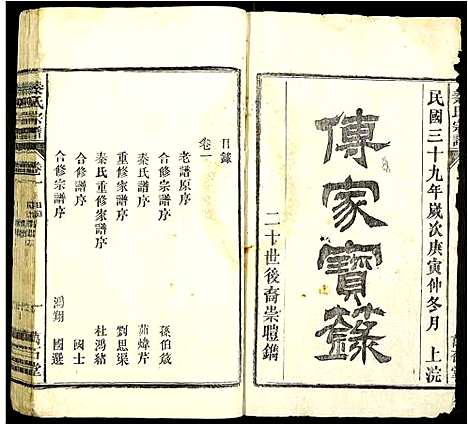 民國三十九年歲次庚寅仲冬月 上浣
傳家寶籙
二十世後裔崇體鐫
目錄
卷一
老譜原序 孫伯筬
秦氏譜序 茆煒芹
重修家譜序 劉思渠
秦氏重修家譜序 杜鴻緒
合修宗譜序 國士
合修宗譜序 鴻翔 國選
秦氏宗譜
卷一
一
萬石堂